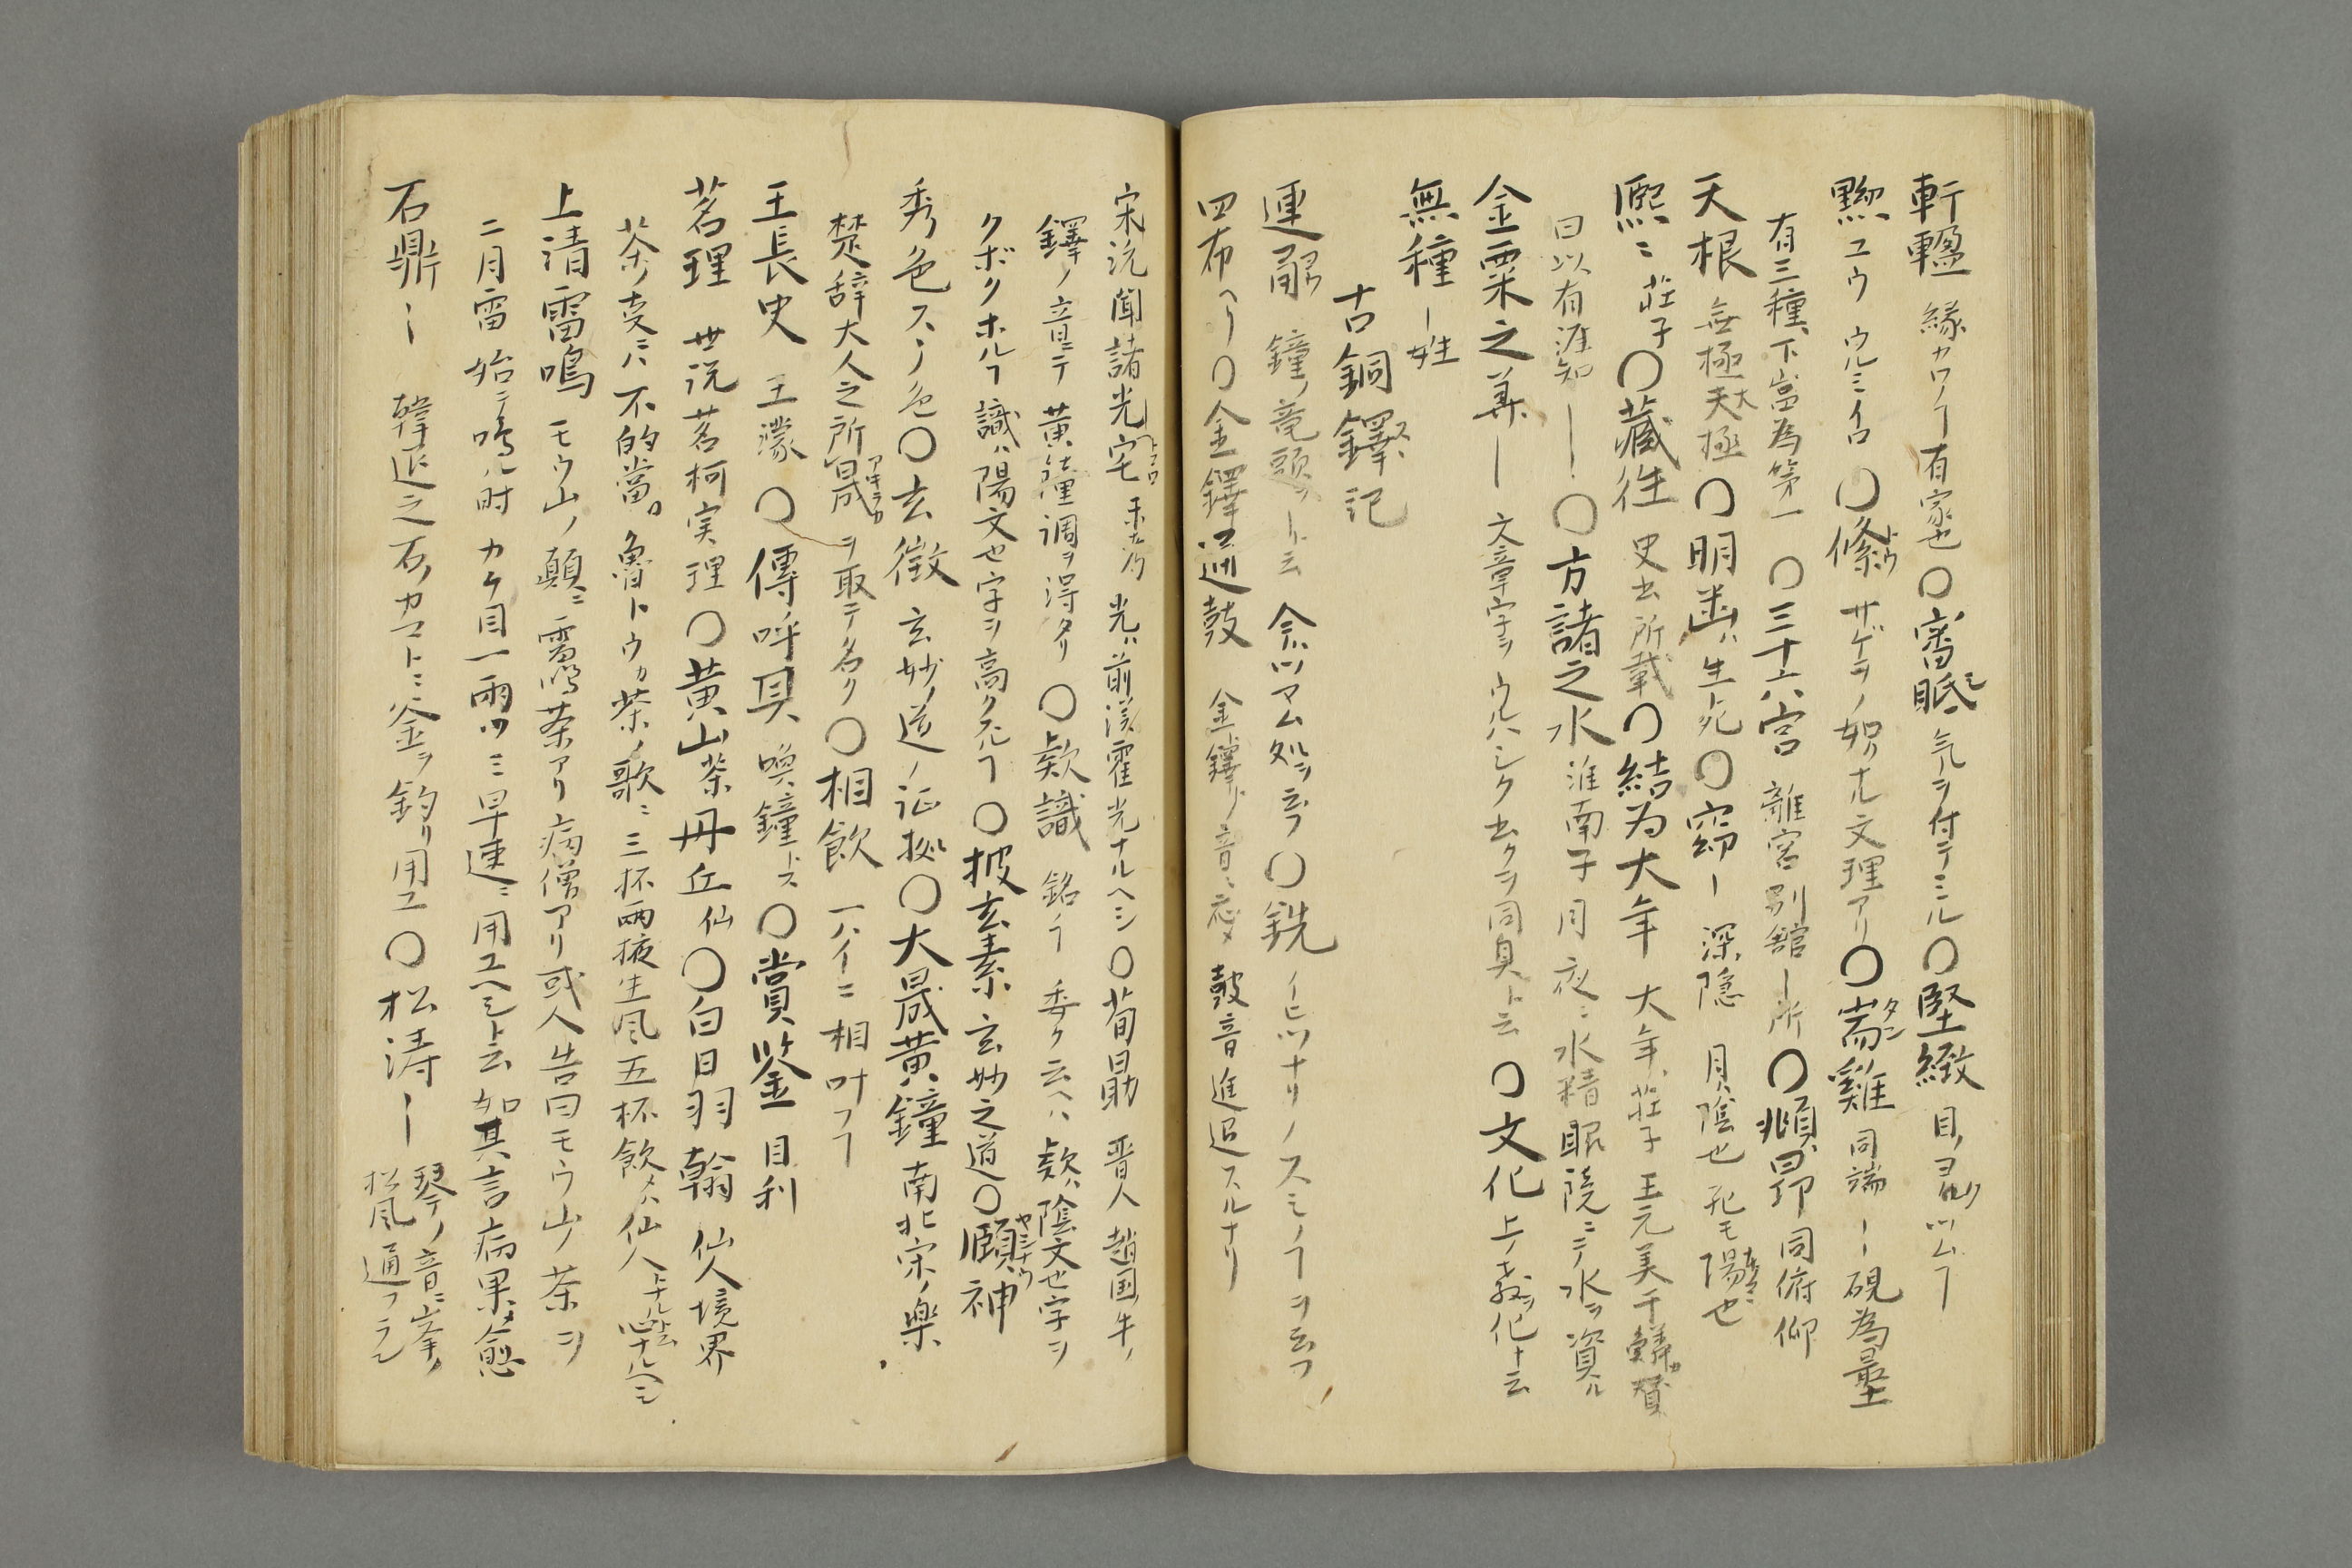 軒轀 縁カワヿ 有家也〇審眡 気ヲ付テミル〇堅緻 目ノヨクツムヿ
黝 ユウ ウルミイロ 〇絛 サゲヲノ如ナル文理アリ〇耑雞 同端ー硯為最
有三種、下岩為第一 〇三十六宮 離宮別館ー所〇頫昻 同俯仰
天根 無極太極〇明幽ハ生死〇窈ー 深隠 月ハ陰也 死モ陽也
熈ミ 荘子〇藏徃 史出所載〇結为大年 大年、荘子 王元美千
曰以有涯知ーー〇方諸之水 淮南子 月夜ニ水精眼鏡ニテ水ヲ資ル
金粟之美ー 文章字ヲウルハシク出クヲ同臭ト云 〇文化 上ノ教ヲ化ト云
無種ー姓
古銅鐸記
連 鐘ノ竜頭ヲート云 今ツマム処ヲ云フ〇銑ーヒツナリノスミノヿヲ云フ
四布ヘリ〇金鐸通鼓 金鐸ノ音ニ応メ 鼓音進退スルナリ
宋沇聞諸光宅 光ハ前漢霍光ナルヘシ〇荀勗 晋人 趙国ノ牛ノ
鐸ノ音ニテ黄鐘調ヲ得タリ〇欵識 銘ヿ 委ク云ヘハ欵ハ陰文也字ヲ
クボクホルヿ識ハ陽文也字ヲ高クスルヿ〇披玄素 玄妙之道〇頤神
秀色 スヽ色〇玄徴 玄妙ノ道ノ証拠〇大晟黄鐘 南北宋ノ楽
楚辞大人之所晟ヲ取テ名ク〇相飲 一ハイニ相叶フヿ
王長史 王濛〇傳呼具 喚鐘トス〇賞鉴 目利
茗理 世说茗柯実理〇黄山茶丹丘 仙〇白日羽翰 仙人境界
茶ノ支ニハ不的當。魯トウカ茶ノ歌ニ三杯両掖生風五杯飲メハ仙人トナルト云心ナルヘシ
上清雷鳴 モウ山ノ顛ニ雷鳴茶アリ病僧アリ或人告曰モウ山ノ茶ヲ
二月雷始テ鳴ル时カケ目一両ツミ早速ニ用ユヘシト云如其言病果メ愈
石鼎ー 韓退之石ノカマトニ釜ヲ釣リ用ユ〇松涛ー 琴ノ音ニ峯ノ松風通フラシ